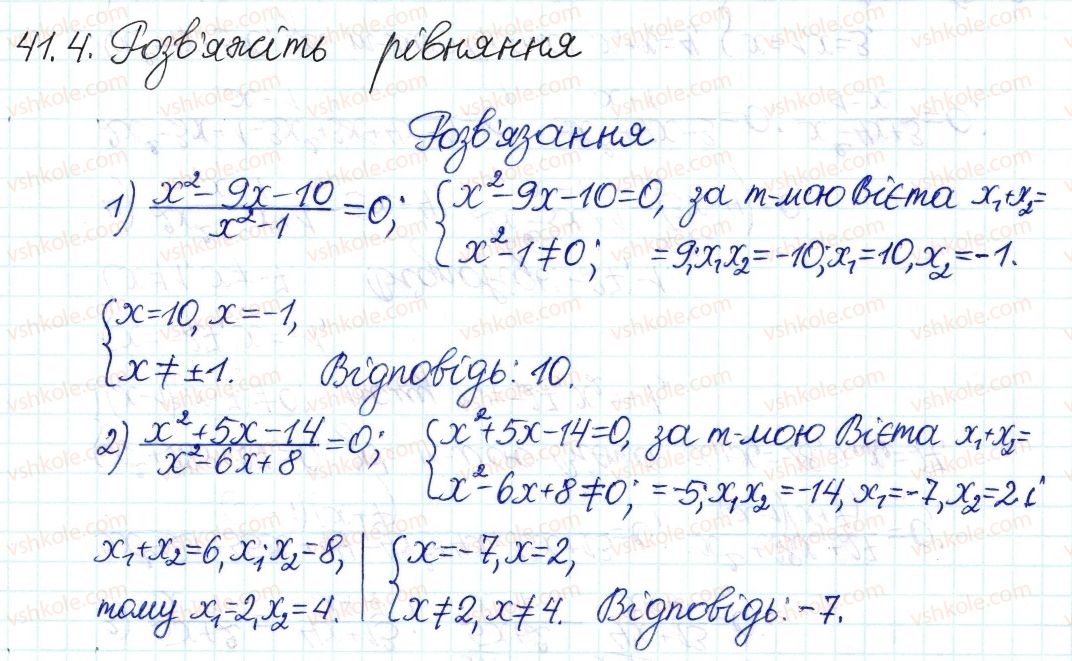 41.4. Розв'яжіть рівняння
Розв'язання
1) (x²-9x-10)/(x²-1)=0; { x²-9x-10=0, за т-мою Вієта x₁+x₂=
x²-1≠0; =9; x₁x₂=-10; x₁=10, x₂=-1.
{ x=10, x=-1,
x≠±1. Відповідь: 10.
2) (x²+5x-14)/(x²-6x+8)=0; { x²+5x-14=0, за т-мою Вієта x₁+x₂=
x²-6x+8≠0; =-5; x₁x₂=-14, x₁=-7, x₂=2. і
x₁+x₂=6, x₁·x₂=8, | { x=-7, x=2,
тому x₁=2, x₂=4. | x≠2, x≠4. Відповідь: -7.
vshkole.com